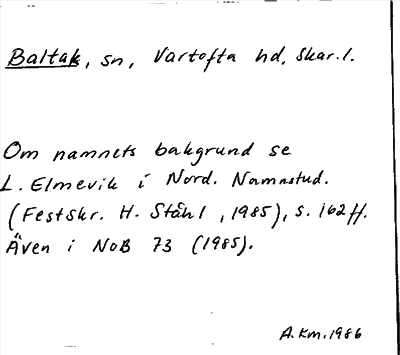 Baltak, sn, Vartofta hd, Skar.l.
Om namnets bakgrund se
L. Elmevik i Nord. Namnstud.
(Festskr. H. Ståhl, 1985), s. 162 ff.
Även i NoB 73 (1985).
A.Km.1986